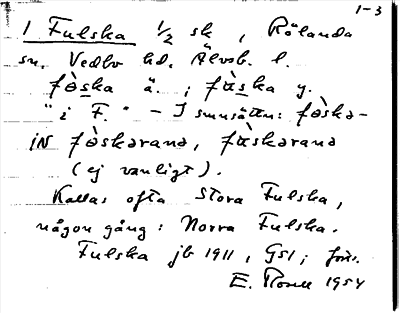 1-3
1 Fulska 1/2 sk, Rölanda
sn. Vedbo hd. Älvsb. l.
fø̀ska ä. ; fʉ̀ska y.
"i F." - I smnsättn: fø̀ska-
iN fø̀skarana, fʉ̀skarana
(ej vanligt).
Kallas ofta Stora Fulska,
någon gång: Norra Fulska.
Fulska jb 1911, GS1;
E. 1954